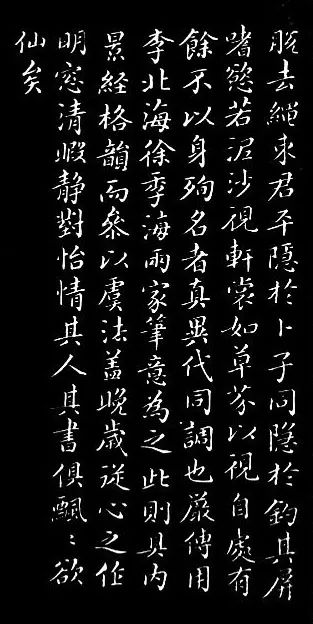 脫去繩束君平隱於卜子同隱於釣其屏
嗜慾若泥沙視軒裳如草芥以視自處有
餘不以身殉名者真異代同調也嚴傅用
李北海徐季海兩家筆意為之此則具內
景經格韻而參以虞法蓋晚歲從心之作
明窓清暇靜對怡情其人其書俱飄〻欲
仙矣